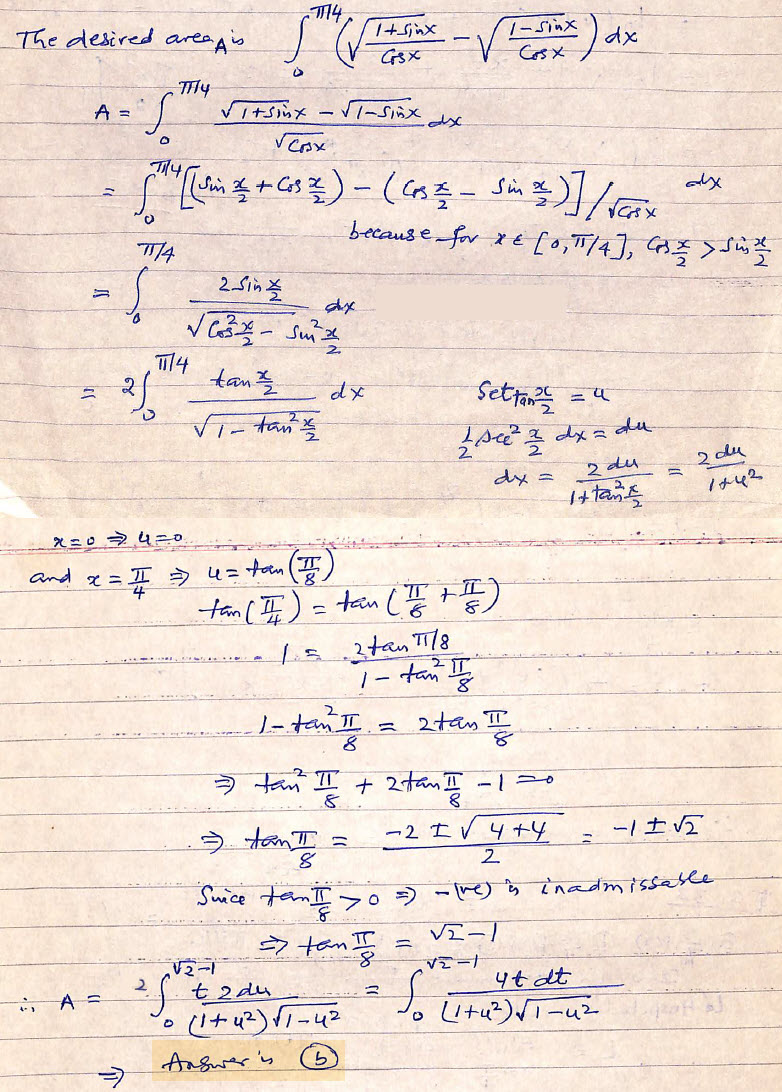 The desired area A is ∫₀^{π/4} (√((1+sinx)/Cosx) − √((1−sinx)/Cosx)) dx
A = ∫₀^{π/4} (√(1+sinx) − √(1−sinx))/√Cosx dx
= ∫₀^{π/4} [(sin x/2 + Cos x/2) − (Cos x/2 − Sin x/2)] / √Cosx dx
because for x ∈ [0, π/4], Cos x/2 > Sin x/2
= ∫₀^{π/4} (2 Sin x/2)/√(Cos² x/2 − Sin² x/2) dx
= 2∫₀^{π/4} (tan x/2)/√(1 − tan² x/2) dx
Set tan x/2 = u
1/2 sec² x/2 dx = du
dx = 2du/(1+tan² x/2) = 2du/(1+u²)
x=0 ⇒ u=0
and x = π/4 ⇒ u = tan(π/8)
tan(π/4) = tan(π/8 + π/8)
1 = (2tan π/8)/(1 − tan² π/8)
1 − tan² π/8 = 2tan π/8
⇒ tan² π/8 + 2tan π/8 − 1 = 0
⇒ tan π/8 = (−2 ± √(4+4))/2 = −1 ± √2
Since tan π/8 > 0 ⇒ −(ve) is inadmissable
⇒ tan π/8 = √2 − 1
∴ A = 2∫₀^{√2−1} (t 2du)/((1+u²)√(1−u²)) = ∫₀^{√2−1} (4t dt)/((1+u²)√(1−u²))
⇒ Answer is (b)